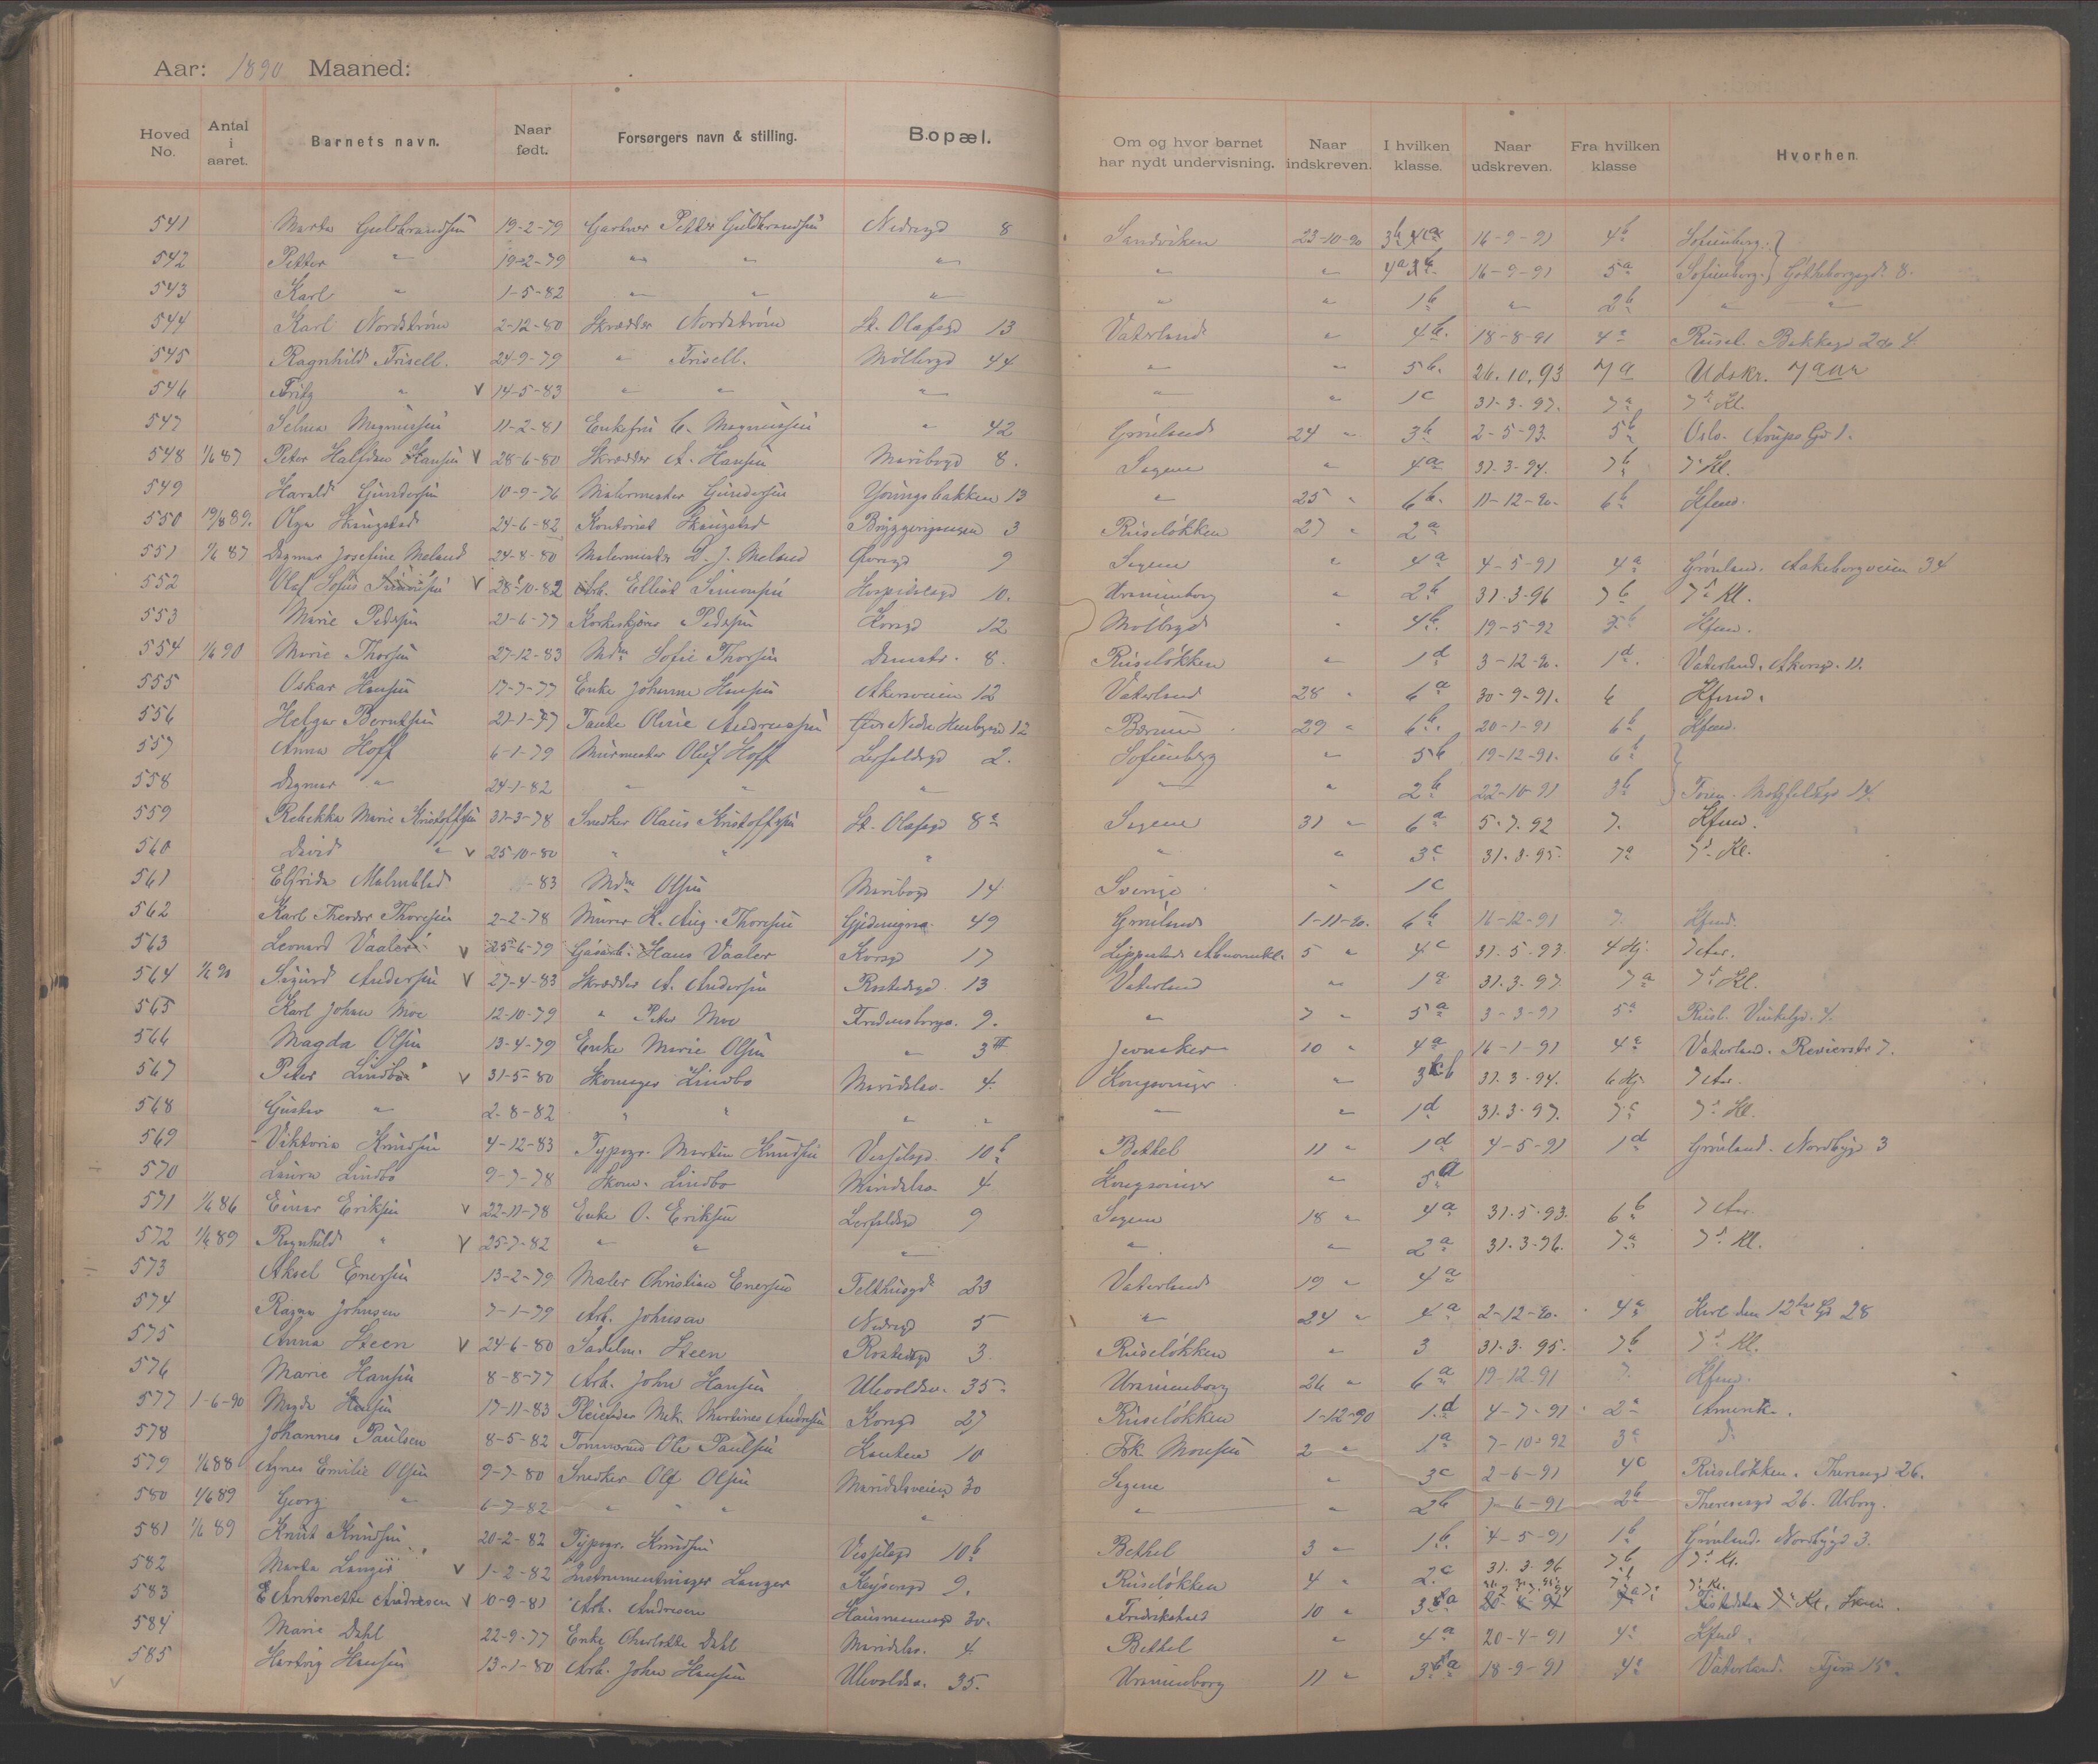 Aar: 1890 Maaned:
Hoved No. Antal i aaret. Barnets navn. Naar født. Forsørgers navn & stilling. Bopæl. Om og hvor barnet har nydt undervisning. Naar indskreven. I hvilken klasse. Naar udskreven. Fra hvilken klasse Hvorhen.
541 Marta Gulbrandsen 19-2-79 Gartner Petter Gulbrandsen Nedregd 8 Sandviken 23-10-90 16-9-91 4b Sofienberg
542 Petter " 19-2-79 " " " " " 16-9-91 5a Sofienberg. Gøtheborggd. 8.
543 Karl " 1-5-82 " " " " " 1b " 2b " "
544 Karl Nordstrøm 2-12-80 Skrædder Nordstrøm St. Olafsgd 13 Vaterland " 4b. 18-8-91 4a Rusel. Bakkegd 4
545 Ragnhild Frisell. 24-9-79 " Frisell. Møllergd 44 " " 5b. 26.10.93 7a Udskr. 7 aar
546 Fritz " V 14-5-83 " " " " " 1c 31-3-97. 7a 7de Kl.
547 Selma Magnussen 11-2-81 Enkefru C. Magnussen " 42 Grønland 24 " 3b 2-5-93. 5b Oslo.
548 1/6 87 Peter Halfdan Hansen V 28-6-80 Skrædder A. Hansen Maribogd 8. Sagene " 4a 31.3-94. 7b 7 Kl.
549 Harald Gundersen 10-9-76 Malermester Gundersen Youngsbakken 13 " 25 " 6b. 11-12-90. 6b Kfmd.
550 19/8 89. Olga Skaugstad 24-6-82 Kontorist Skaugstad 3 Ruseløkken 27 " 2a
551 1/6 87 Dagmar Josefine Meland 24-8-80 Malermester L. J. Meland 9 Sagene " 4a 4-5-91 4a Grønland. Aakebergveien 34
552 Olaf Sofus Simonsen V 28-10-82 Arb. Ellert Simonsen Hospitalsgd 10. Uranienborg " 2b 31-3-96 7b 7de Kl.
553 Marie Pedersen 21-6-77 Korkeskjærer Pedersen Korsgd 12 Møllergd " 4b. 19-5-92 Kfmd.
554 1/6 90 Marie Thorsen 27-12-83 Mdm Sofie Thorsen Damstr. 8. Ruseløkken " 1d 3-12-90. 1d. Vaterland. Akersgd. 11.
555 Oskar Hansen 17-7-77 Enke Johanne Hansen Akersveien 12 Vaterland 28 " 6a 30-9-91. 6 Kfmd.
556 Helga Berntsen 21-1-77 Tante Oline Andreassen 12 Bærum 29 " 6b. 20-1-91 6b Kfmd.
557 Anna Hoff 6-1-79 Murmester Oluf Hoff Lerfaldsgd 2. Sofienberg " 5b 19-12-91. 6b
558 Dagmar " 24-1-82 " " " " " 2b 22-10-91 3b Tøien. Motzfeldtsgd 14.
559 Rebekka Marie Kristoffersen 31-3-78 Snedker Olaus Kristoffersen St. Olafsgd 8a Sagene 31 " 6a 5.7.92 7. Kfmd.
560 David " V 25-10-80 " " " " " 3c 31.3.95. 7a 7de Kl.
561 Elfrida Malmblad -83 Mdm Olsen Maribogd 14 Sverige " 1c
562 Karl Theodor Thoresen 2-2-78 Murer K. Aug. Thoresen 49 Grønland 1-11-90. 6b 16-12-91 7. Kfmd.
563 Leonard Vaaler V 25-6-79 Gasarb. Hans Vaaler Korsgd 17 Lippestads Abnormskl. 5 " 4c 31.5.93. 4 Hj. 7 Aar.
564 1/6 90 Sigurd Andersen V 27-4-83 Skrædder A. Andersen Rostedsgd 13 Vaterland " 1a 31.3.97. 7a 7de Kl.
565 Karl Johan Moe 12-10-79 " Peter Moe Fredensborgv. 9. " 7 " 5a 3-3-91 5a Rusl. Vinkelgd. 4.
566 Magda Olsen 13-4-79 Enke Marie Olsen " 3III Jevnaker 10 " 4a 16-1-91 4a Vaterland. Revierstr 7.
567 Peter Lindbo V 31-5-80 Skomager Lindbo Maridalsv. 4. Kongsvinger " 31.3.94. 6 Hj. 7 Aar.
568 Gustav " 2-8-82 " " " " " " 1d 31.3.97. 7c 7de Kl.
569 Viktoria Knudsen 4-12-83 Typogr. Martin Knudsen Vessels gd. 10b Bethel 11 " 1d 4-5-91 1d Grønland. Nordbygd 3
570 Laura Lindbo 9-7-78 Skom. Lindbo Maridalsv. 4 Kongsvinger " 5a
571 1/6 86 Einar Eriksen V 22-11-78 Enke O. Eriksen Lerfaldsgd 9 Sagene 18 " 4a 31.5.93. 6b 7 Aar.
572 1/6 89 Ragnhild " V 25-7-82 " " " " " 2a 31.3.96. 7a 7de Kl.
573 Aksel Enersen 13-2-79 Maler Christian Enersen Telthusgd 23 Vaterland 19 " 4a
574 Ragna Johnsen 7-1-79 Arb. Johnsen Nedregd 5 " 24 " 4a 2-12-90. 4a Karl den 12te Gd 28
575 Anna Steen V 24-6-80 Sadelm. Steen Rostedsgd 3 Ruseløkken " 3 31.3.95. 7b 7de Kl.
576 Marie Hansen 8-8-77 Arb. Johan Hansen Ulevoldsv. 35. Uranienborg 26 " 6a 19-12-91 7. Kfmd.
577 1-6-90 Magda Hansen 17-11-83 Pleiefader Mek. Martinus Andersen Korsgd 27 Ruseløkken 1-12-90 1.d 4-7-91 2a Amerik.
578 Johannes Paulsen 8-5-82 Tømmermd Ole Paulsen 10 Frk. Monsen 2 " 1a 7-10-92 3a
579 1/6 88 Agnes Emilie Olsen 9-7-80 Snedker Olf Olsen Maridalsveien 30 Sagene " 3c 2-6-91 4c Ruseløkken. Theresegd 26.
580 1/6 89 Georg " 6-7-82 " " " " " " 2b 2b Theresesgd 26. Urborg.
581 1/6 89 Knut Knudsen 20-2-82 Typogr. Knudsen Vesselsgd 10b Bethel 3 " 1b. 4-5-91 1b Grønland. Nordbygd 3.
582 Marta Langer V 1-2-82 Instrumentmager Langer Keysersgd 9. Ruseløkken 4 " 2.c 31.3.96 7b 7de Kl.
583 E Antonette Andresen V 10-9-81 Arb. Andresen Hausmannsgd 30. Fredrikshald 10 "
584 Marie Dahl 22-9-77 Enke Charlotte Dahl Maridalsv. 4. Bethel " 4a 20-4-91 4a Kfmd.
585 Hartvig Hansen 13-1-80 Arb. Johan Hansen Ulevoldsv. 35. Uranienborg 11 " 18-9-91 4a Vaterland.
V